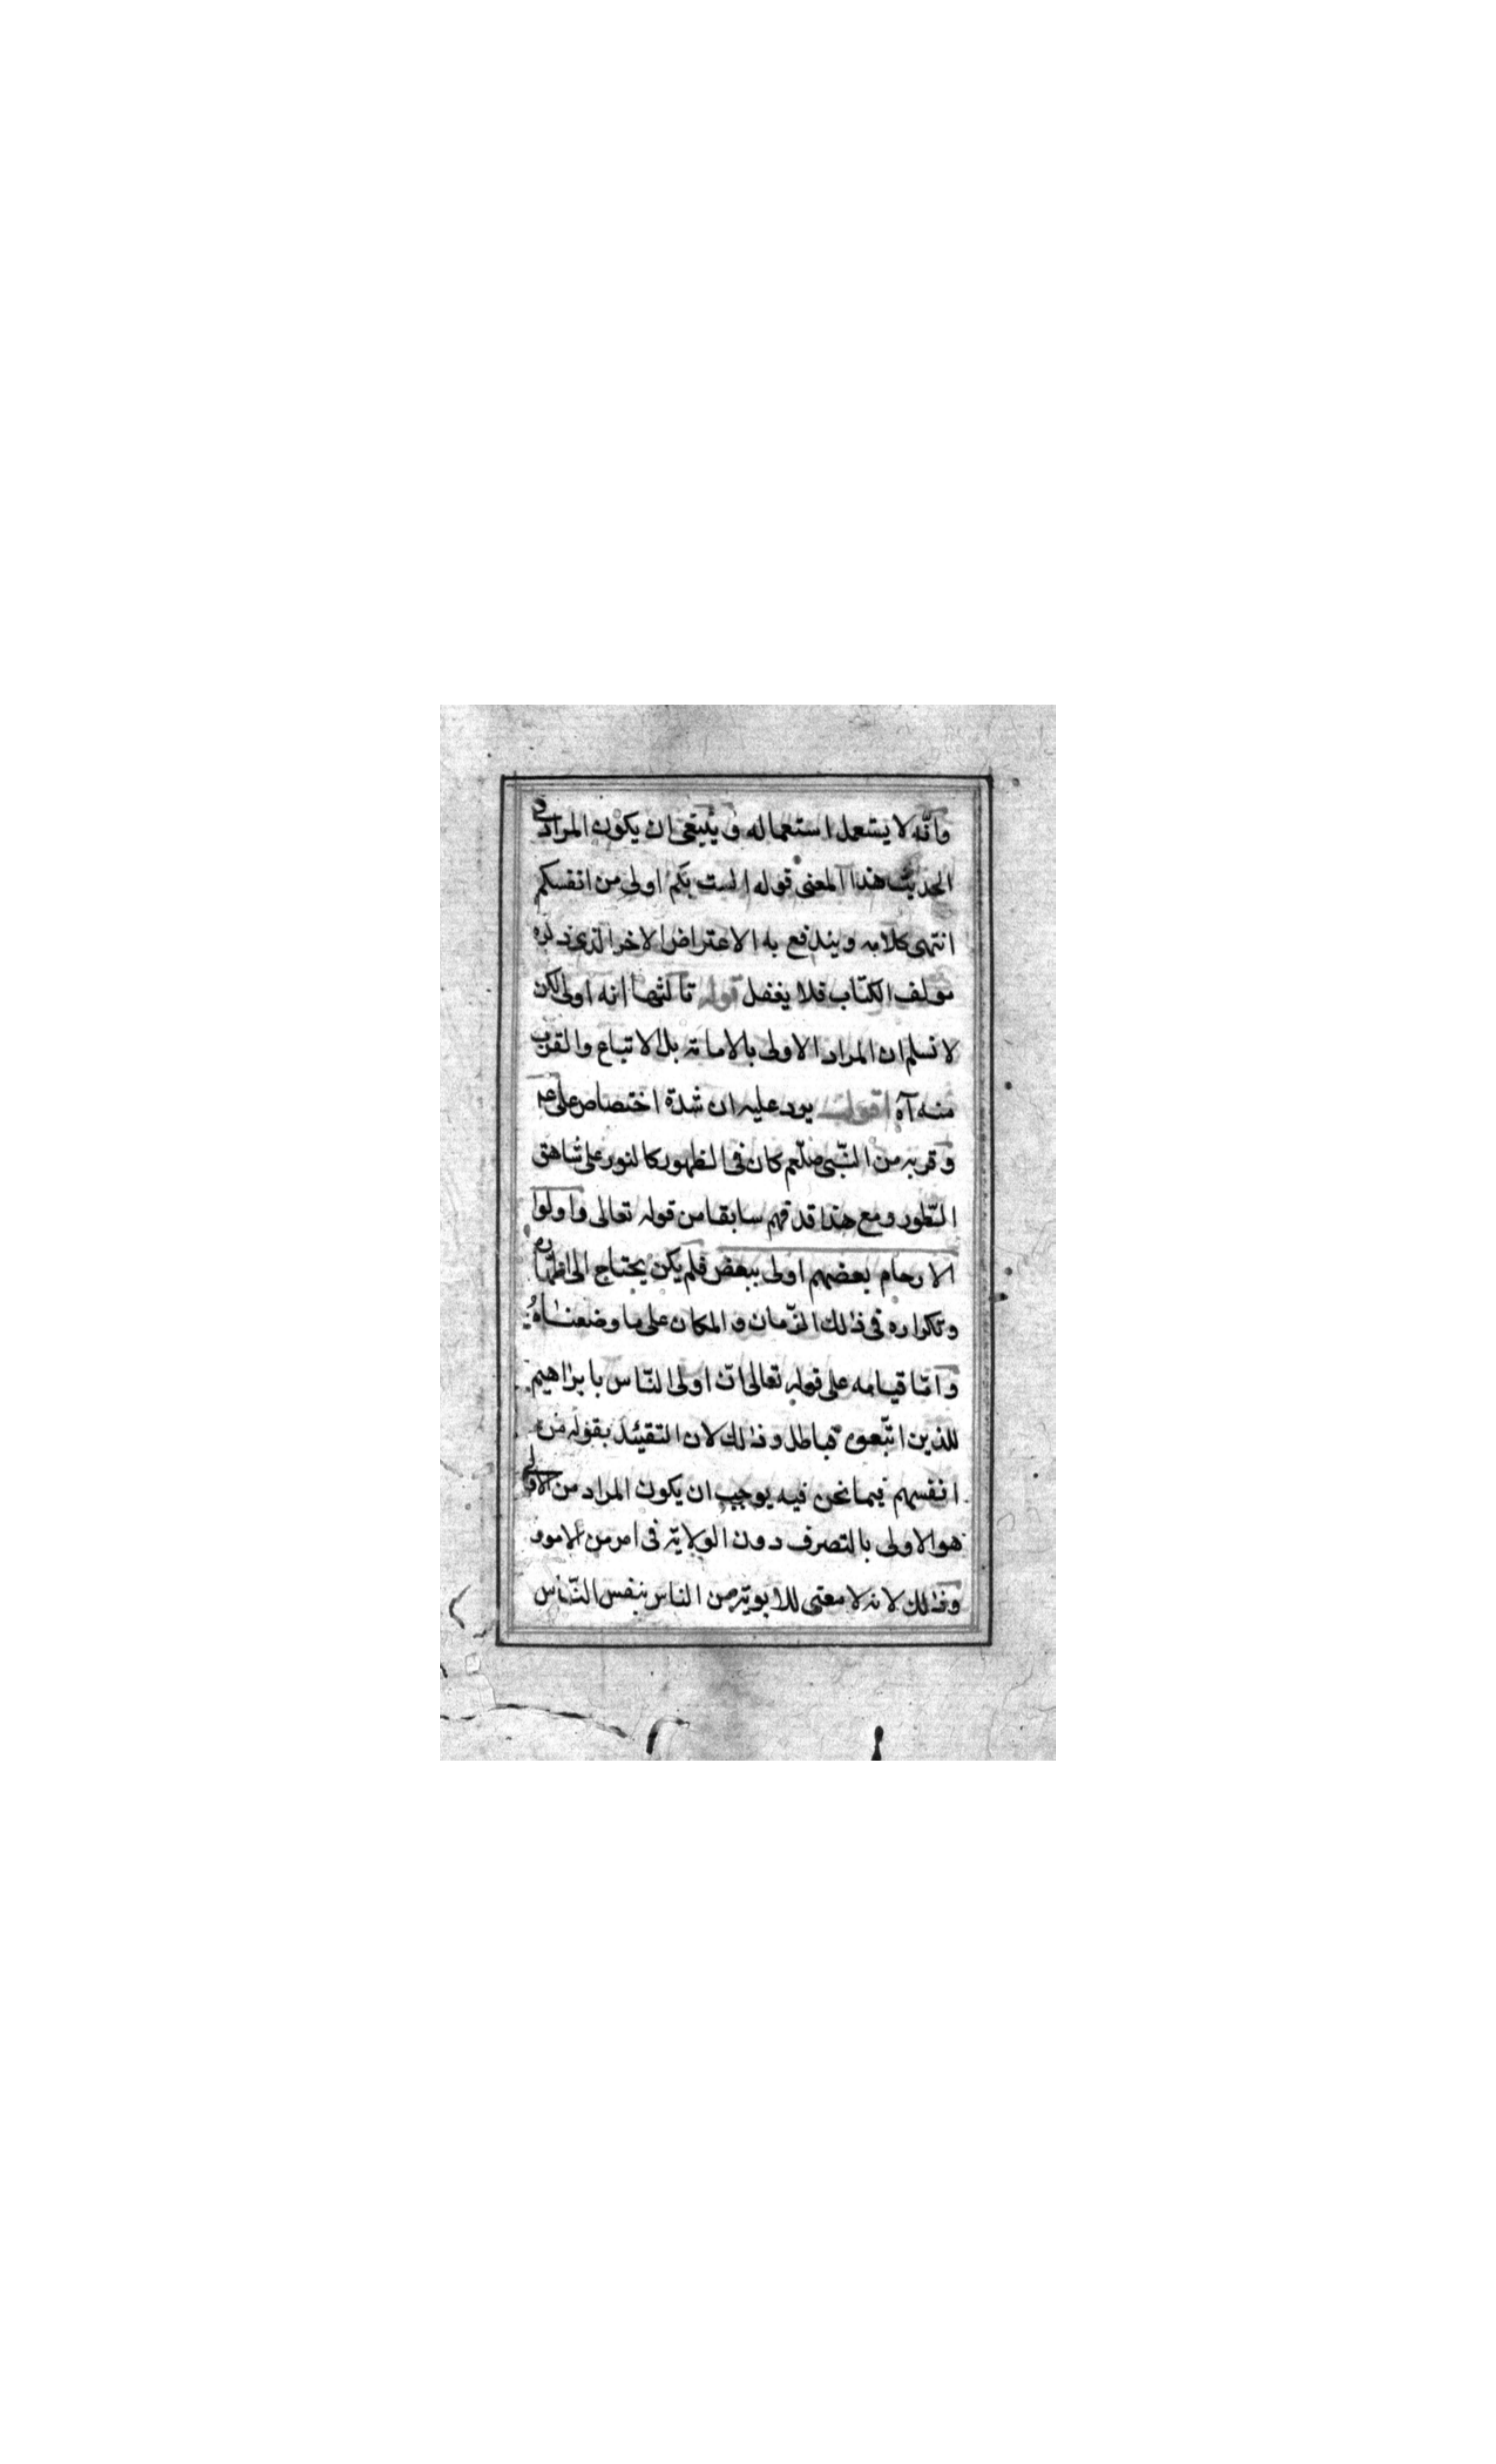 وانّه لا يستعمل استعماله و ينبغى ان يكون المراد فى
الحديث هذا المعنى قوله الست بكم اولى من انفسكم
انتهى كلامه و يندفع به الاعتراض الاخر الذى ذكره
مولف الكتاب فلا يغفل قوله ثالثها انه اولى لكن
لا نسلم ان المراد الاولى بالامامة بل الاتباع والقرب
منه آه اقول يرد عليه ان شدة اختصاص على عم
و قربه من النّبى صلعم كان فى الظهور كالنور على شاهق
الطّور و مع هذا قد فهم سابقا من قوله تعالى واولوا
الارحام بعضهم اولى ببعض فلم يكن يحتاج الى اظهاره
و تكراره فى ذلك الزّمان و المكان على ما وضعناه
و امّا قيامه على قوله تعالى انّ اولى النّاس بابراهيم
للذين اتّبعوه فباطل و ذلك لان التقييد بقوله من
انفسهم فيما نحن فيه يوجب ان يكون المراد من الاولى
هو الاولى بالتصرف دون الولاية فى امر من الامور
و ذلك لانه لا معنى للابوية من الناس بنفس النّاس